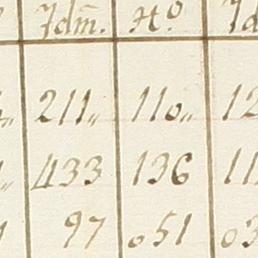 Idm̄. H.º Id
211„ 110„ 12
433 136 11
97 051 03